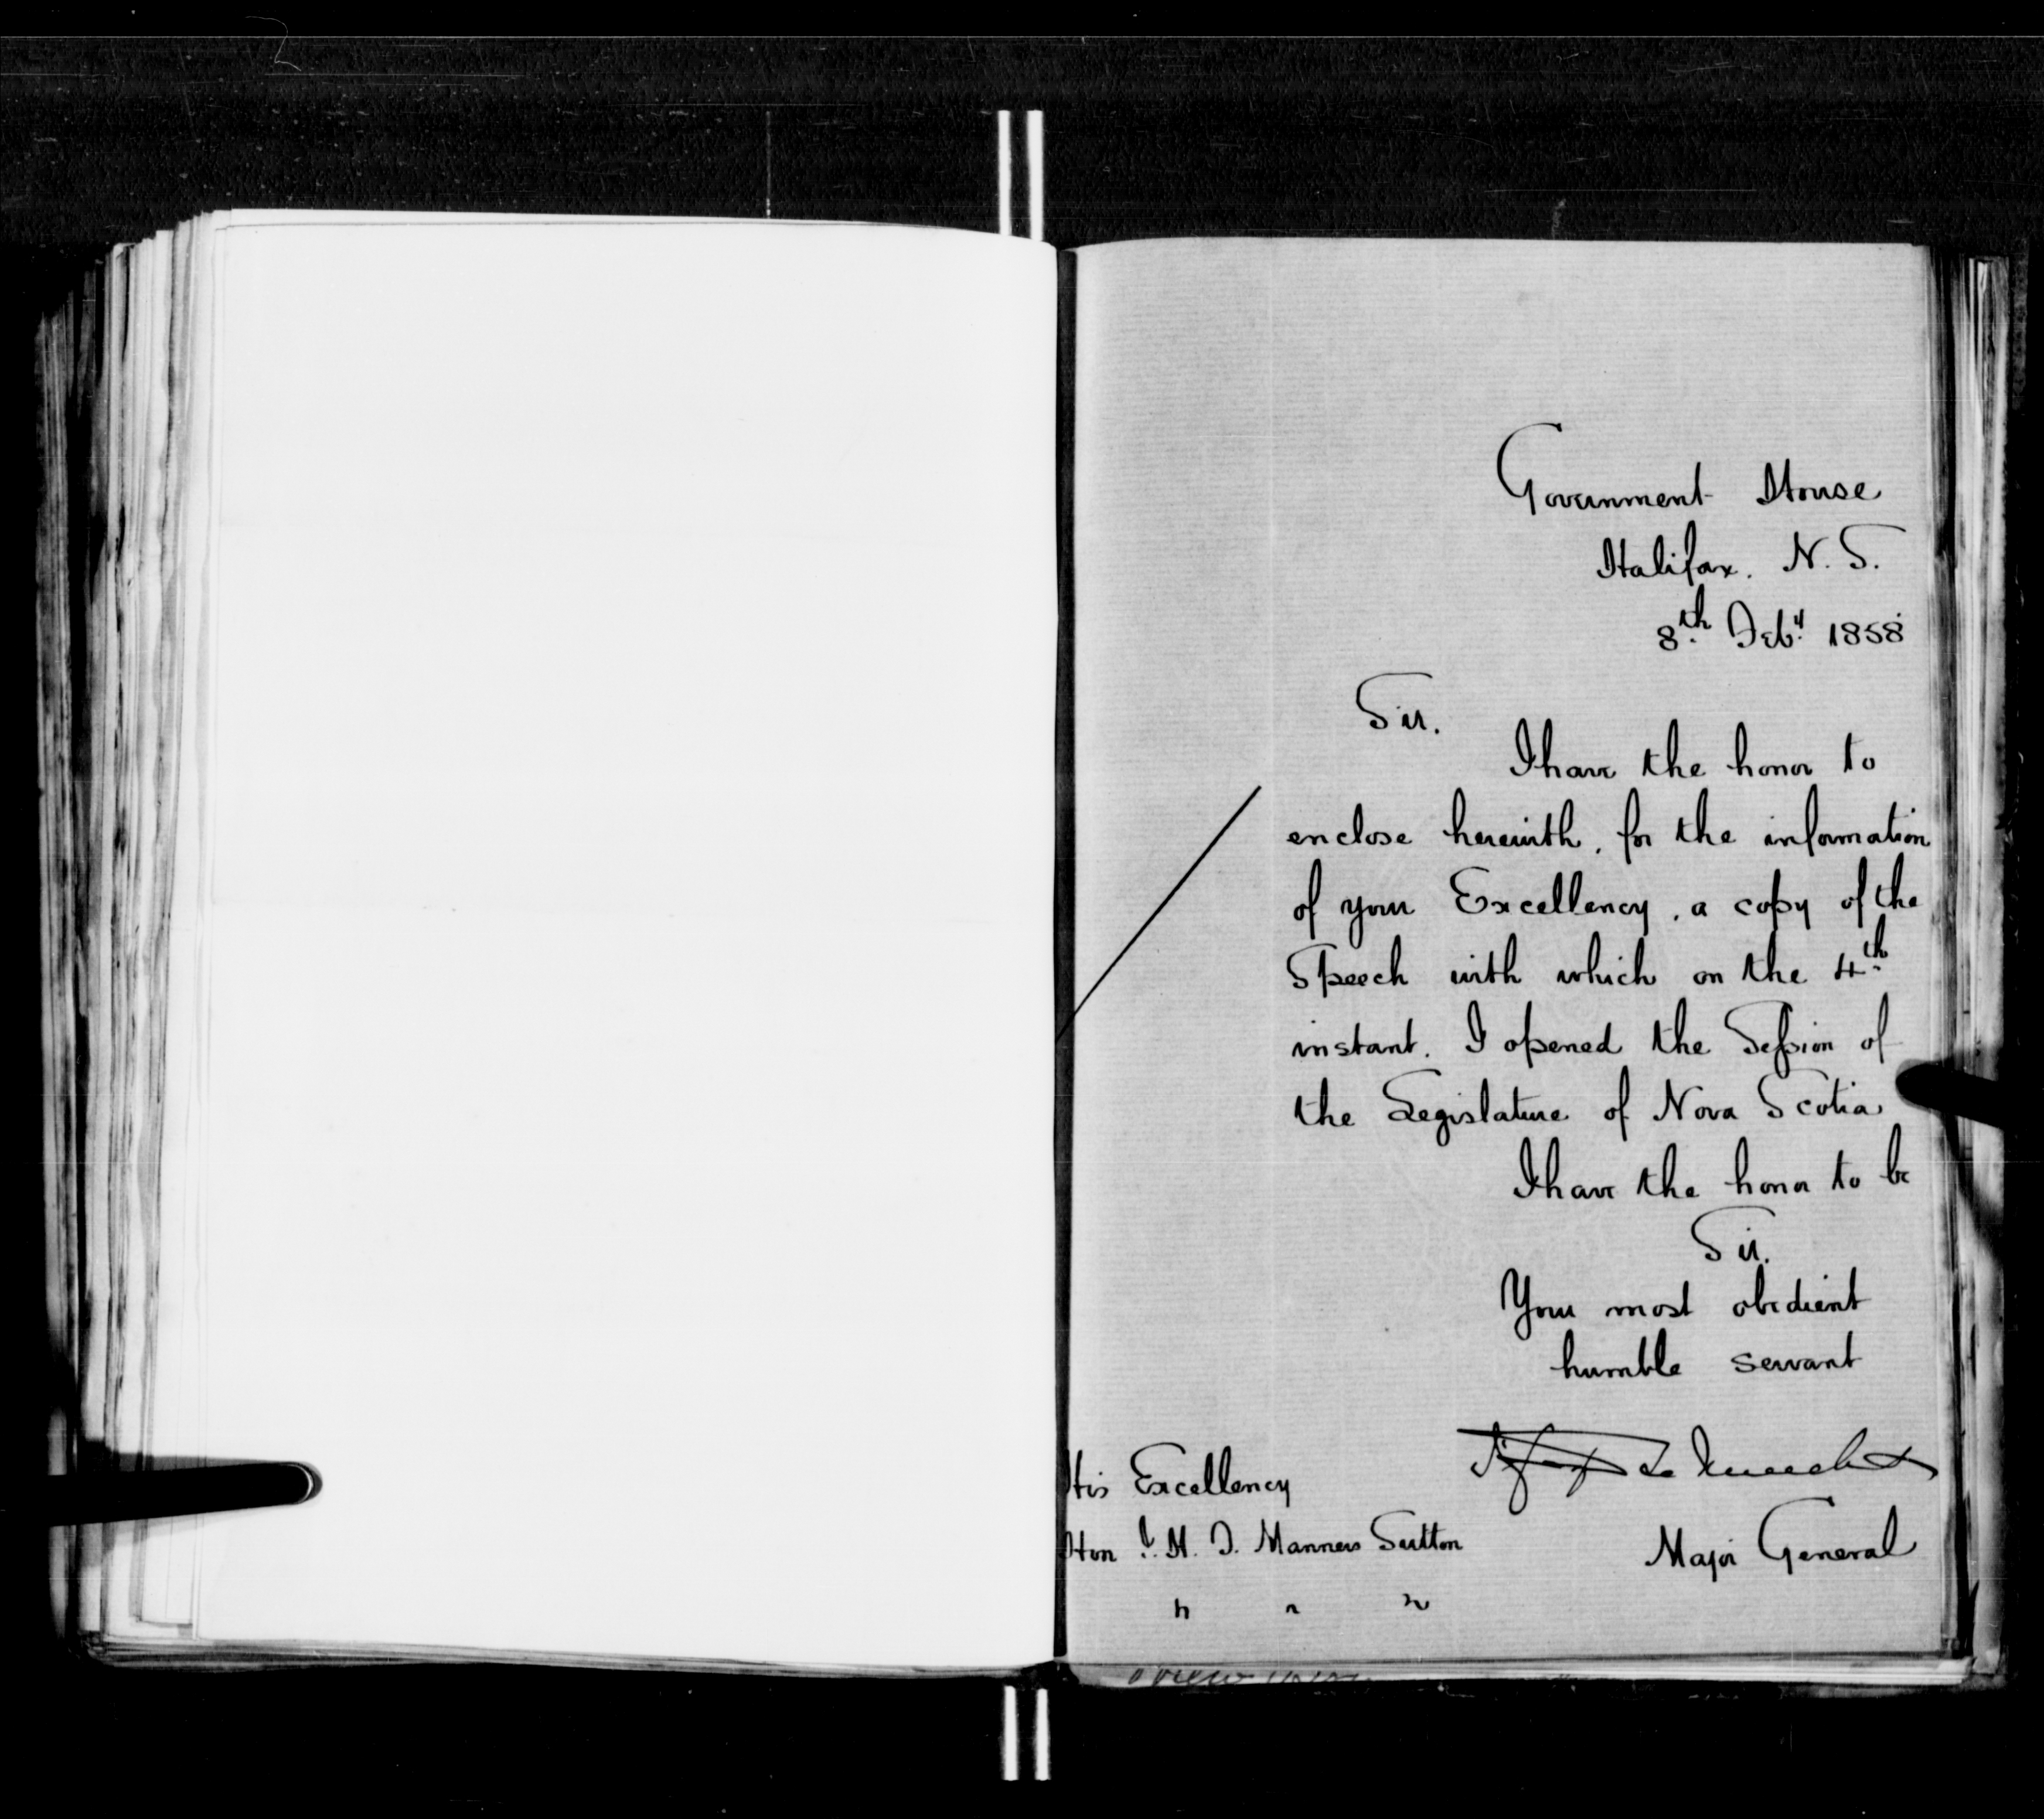 Government House
Halifax. N. S.
8th Feby 1858
Sir.
I have the honor to
enclose herewith, for the information
of your Excellency, a copy of the
Speech with which on the 4th
instant. I opened the Session of
the Legislature of Nova Scotia
I have the honor to be
Sir.
Your most obedient
humble servant
Le Marchant
His Excellency
Honl. H. T. Manners Sutton
Major General
" " "